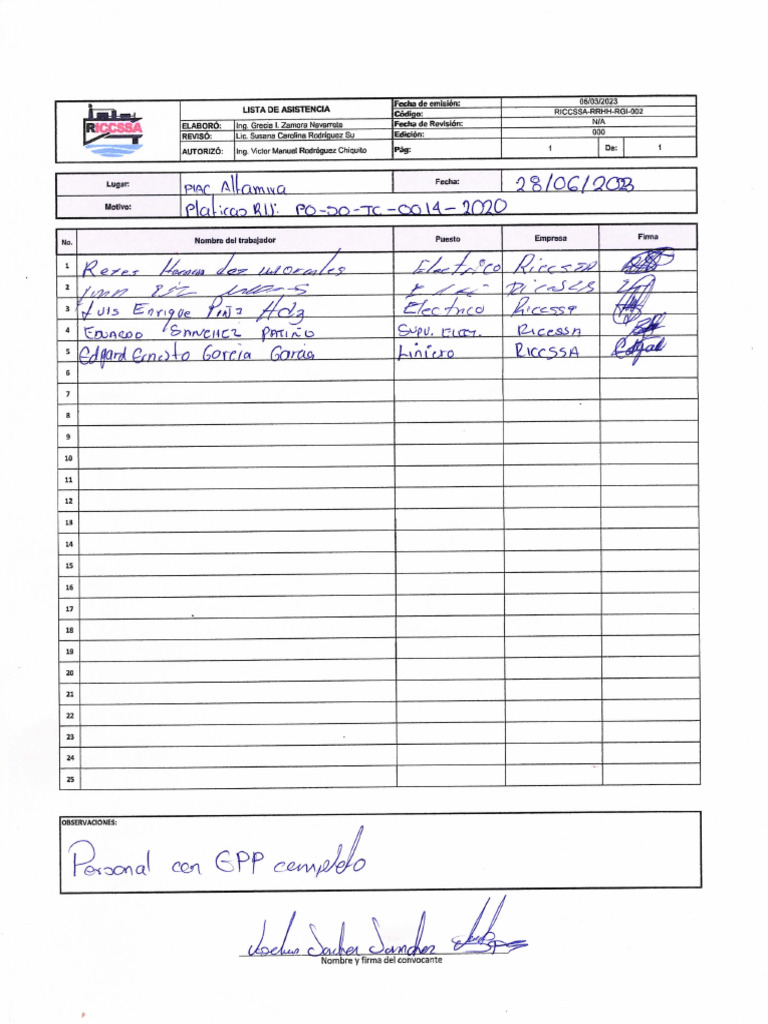 RICCSSA
LISTA DE ASISTENCIA
Fecha de emisión: 06/03/2023
Código: RICCSSA-RRHH-RGI-002
ELABORÓ: Ing. Grecia I. Zamora Navarrete
Fecha de Revisión: N/A
REVISÓ: Lic. Susana Carolina Rodríguez Su
Edición: 000
AUTORIZÓ: Ing. Victor Manuel Rodríguez Chiquito
Pág: 1 De: 1
Lugar: Altamira Fecha: 28/06/2023
Motivo: Platicas PO-DO-TC-0014-2020
No. Nombre del trabajador Puesto Empresa Firma
1 Reyes Morales Electrico Riccssa
2
3 Luis Enrique Piña Hdz Electrico Riccssa
4 EDUARDO SANCHEZ PATIÑO SUPV. ELECT. RICCSSA
5 Edgard Ernesto Garcia Garcia Liniero RICCSSA
6
7
8
9
10
11
12
13
14
15
16
17
18
19
20
21
22
23
24
25
OBSERVACIONES:
Personal con EPP completo
Sanchez
Nombre y firma del convocante